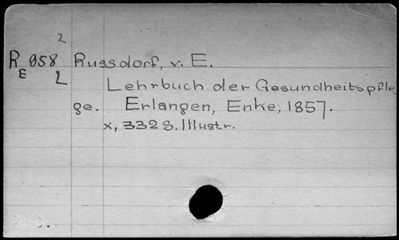 2
R 058 Russdorf, v. E.
E
L Lehrbuch der Gesundheitspfle
ge. Erlangen, Enke, 1857.
x, 332 S. Illustr.